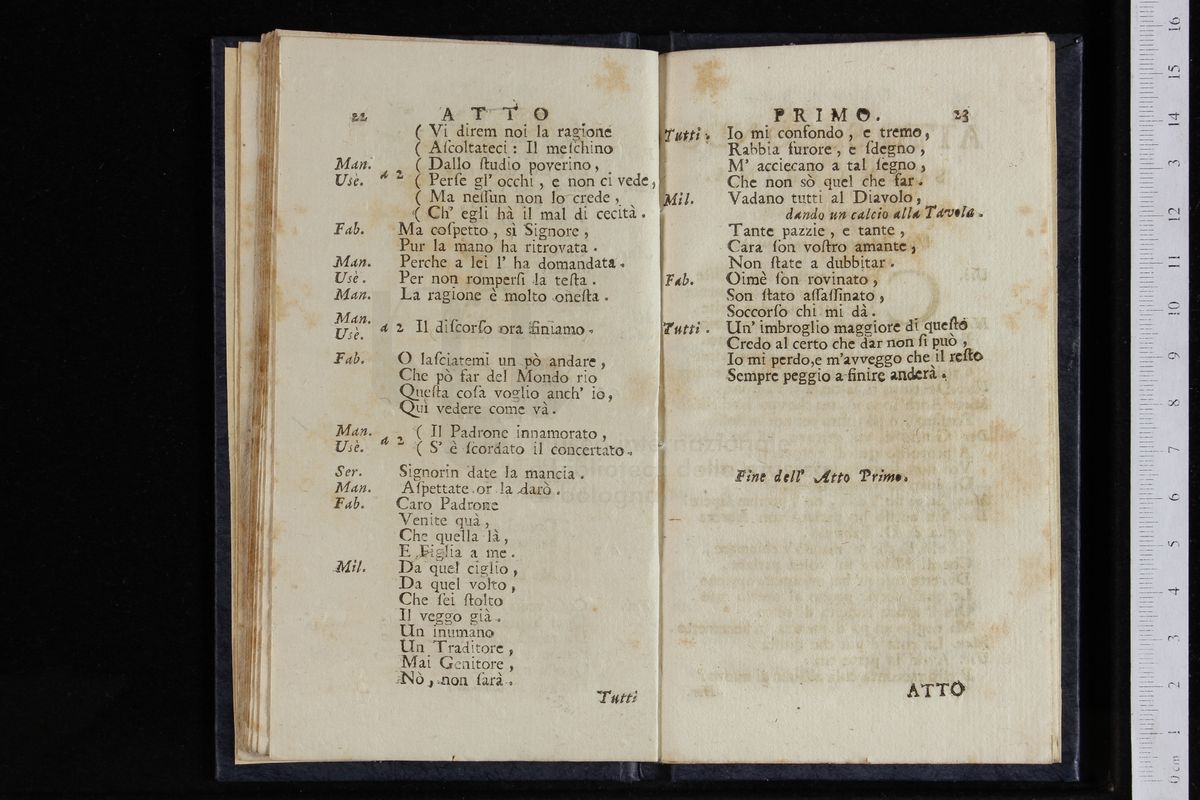 22 ATTO
( Vi direm noi la ragione
( Aſcoltateci : Il meſchino
Man. ( Dallo ſtudio poverino ,
Usè. a 2 ( Perſe gl' occhi , e non ci vede ,
( Ma neſſun non lo crede ,
( Ch' egli hà il mal di cecità .
Fab. Ma coſpetto , sì Signore ,
Pur la mano ha ritrovata .
Man. Perche a lei l' ha domandata .
Usè. Per non romperſi la teſta .
Man. La ragione è molto oneſta .
Man.
Usè. a 2 Il diſcorſo ora finiamo .
Fab. O laſciatemi un pò andare ,
Che pò far del Mondo rio
Queſta coſa voglio anch' io ,
Quì vedere come và .
Man. ( Il Padrone innamorato ,
Usè. a 2 ( S' è ſcordato il concertato .
Ser. Signorin date la mancia .
Man. Aſpettate or la darò .
Fab. Caro Padrone
Venite quà ,
Che quella là ,
E Figlia a me .
Mil. Da quel ciglio ,
Da quel volto ,
Che ſei ſtolto
Il veggo già .
Un inumano
Un Traditore ,
Mai Genitore ,
Nò , non ſarà .
Tutti
PRIMO. 23
Tutti . Io mi confondo , e tremo ,
Rabbia furore , e ſdegno ,
M' acciecano a tal ſegno ,
Che non sò quel che far .
Mil. Vadano tutti al Diavolo ,
dando un calcio alla Tavola .
Tante pazzie , e tante ,
Cara ſon voſtro amante ,
Non ſtate a dubbitar .
Fab. Oimè ſon rovinato ,
Son ſtato aſſaſſinato ,
Soccorſo chi mi dà .
Tutti . Un' imbroglio maggiore di queſto
Credo al certo che dar non ſi può ,
Io mi perdo,e m'avveggo che il reſto
Sempre peggio a finire anderà .
Fine dell' Atto Primo.
ATTO